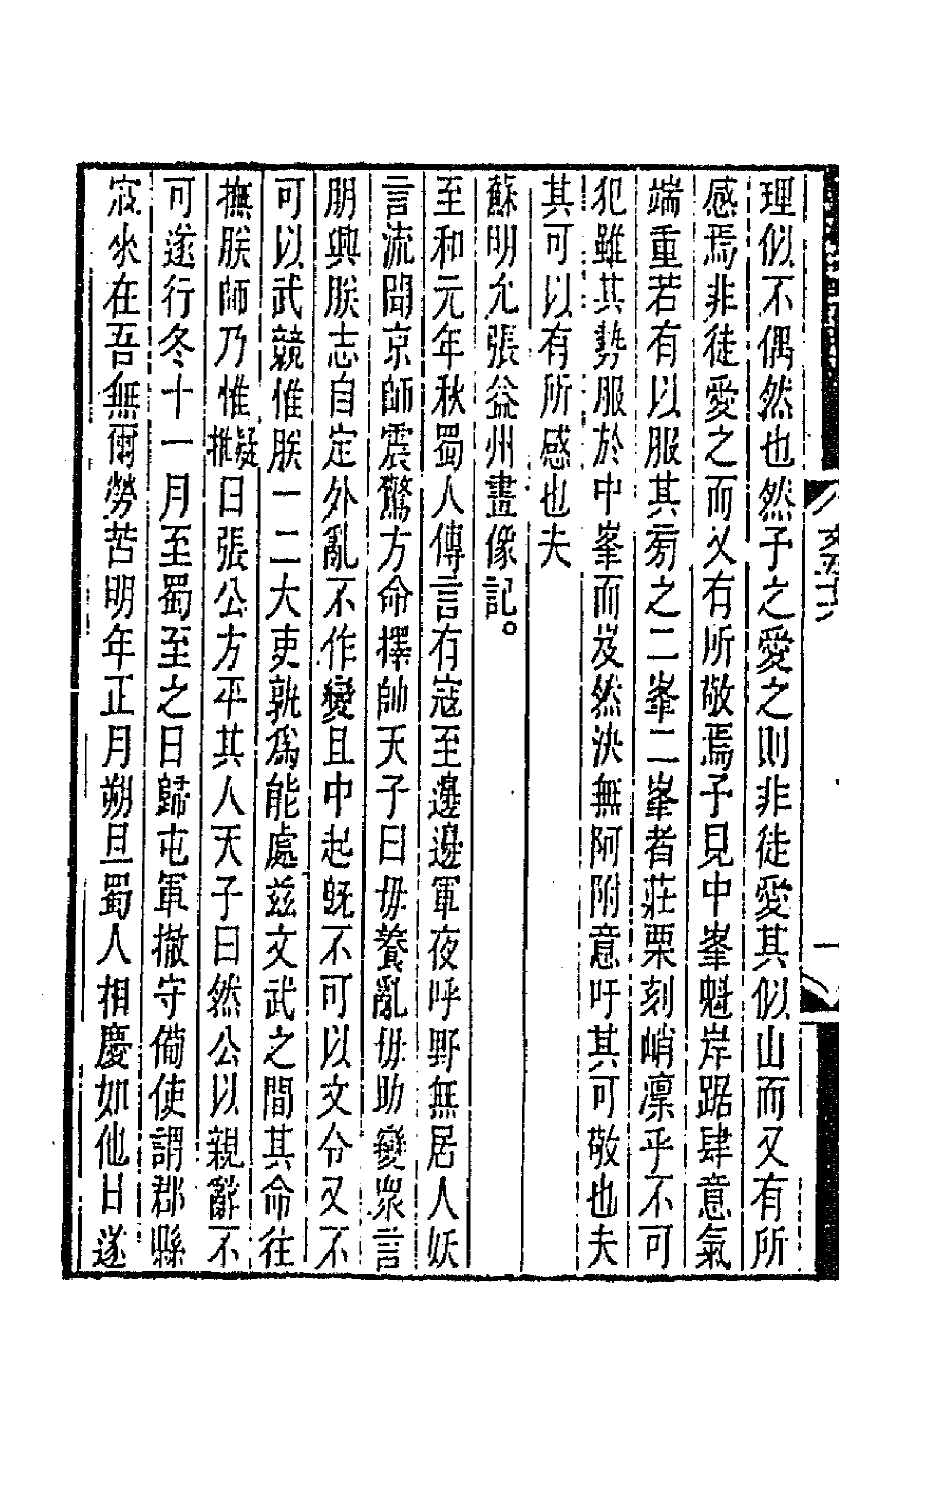 理似不偶然也然予之愛之則非徒愛其似山而又有所
感焉非徒愛之而又有所敬焉予見中峯魁岸踞肆意氣
端重若有以服其旁之二峯二峯者莊栗刻峭凛乎不可
犯雖其勢服於中峯而岌然決無阿附意吁其可敬也夫
其可以有所感也夫
蘇明允張益州畫像記。
至和元年秋蜀人傳言有寇至邊邊軍夜呼野無居人妖
言流聞京師震驚方命擇帥天子曰毋養亂毋助變衆言
朋興朕志自定外亂不作變且中起旣不可以文令又不
可以武競惟朕一二大吏孰爲能處茲文武之間其命往
撫朕師乃惟疑推曰張公方平其人天子曰然公以親辭不
可遂行冬十一月至蜀至之日歸屯軍撤守備使謂郡縣
寇來在吾無爾勞苦明年正月朔旦蜀人相慶如他日遂